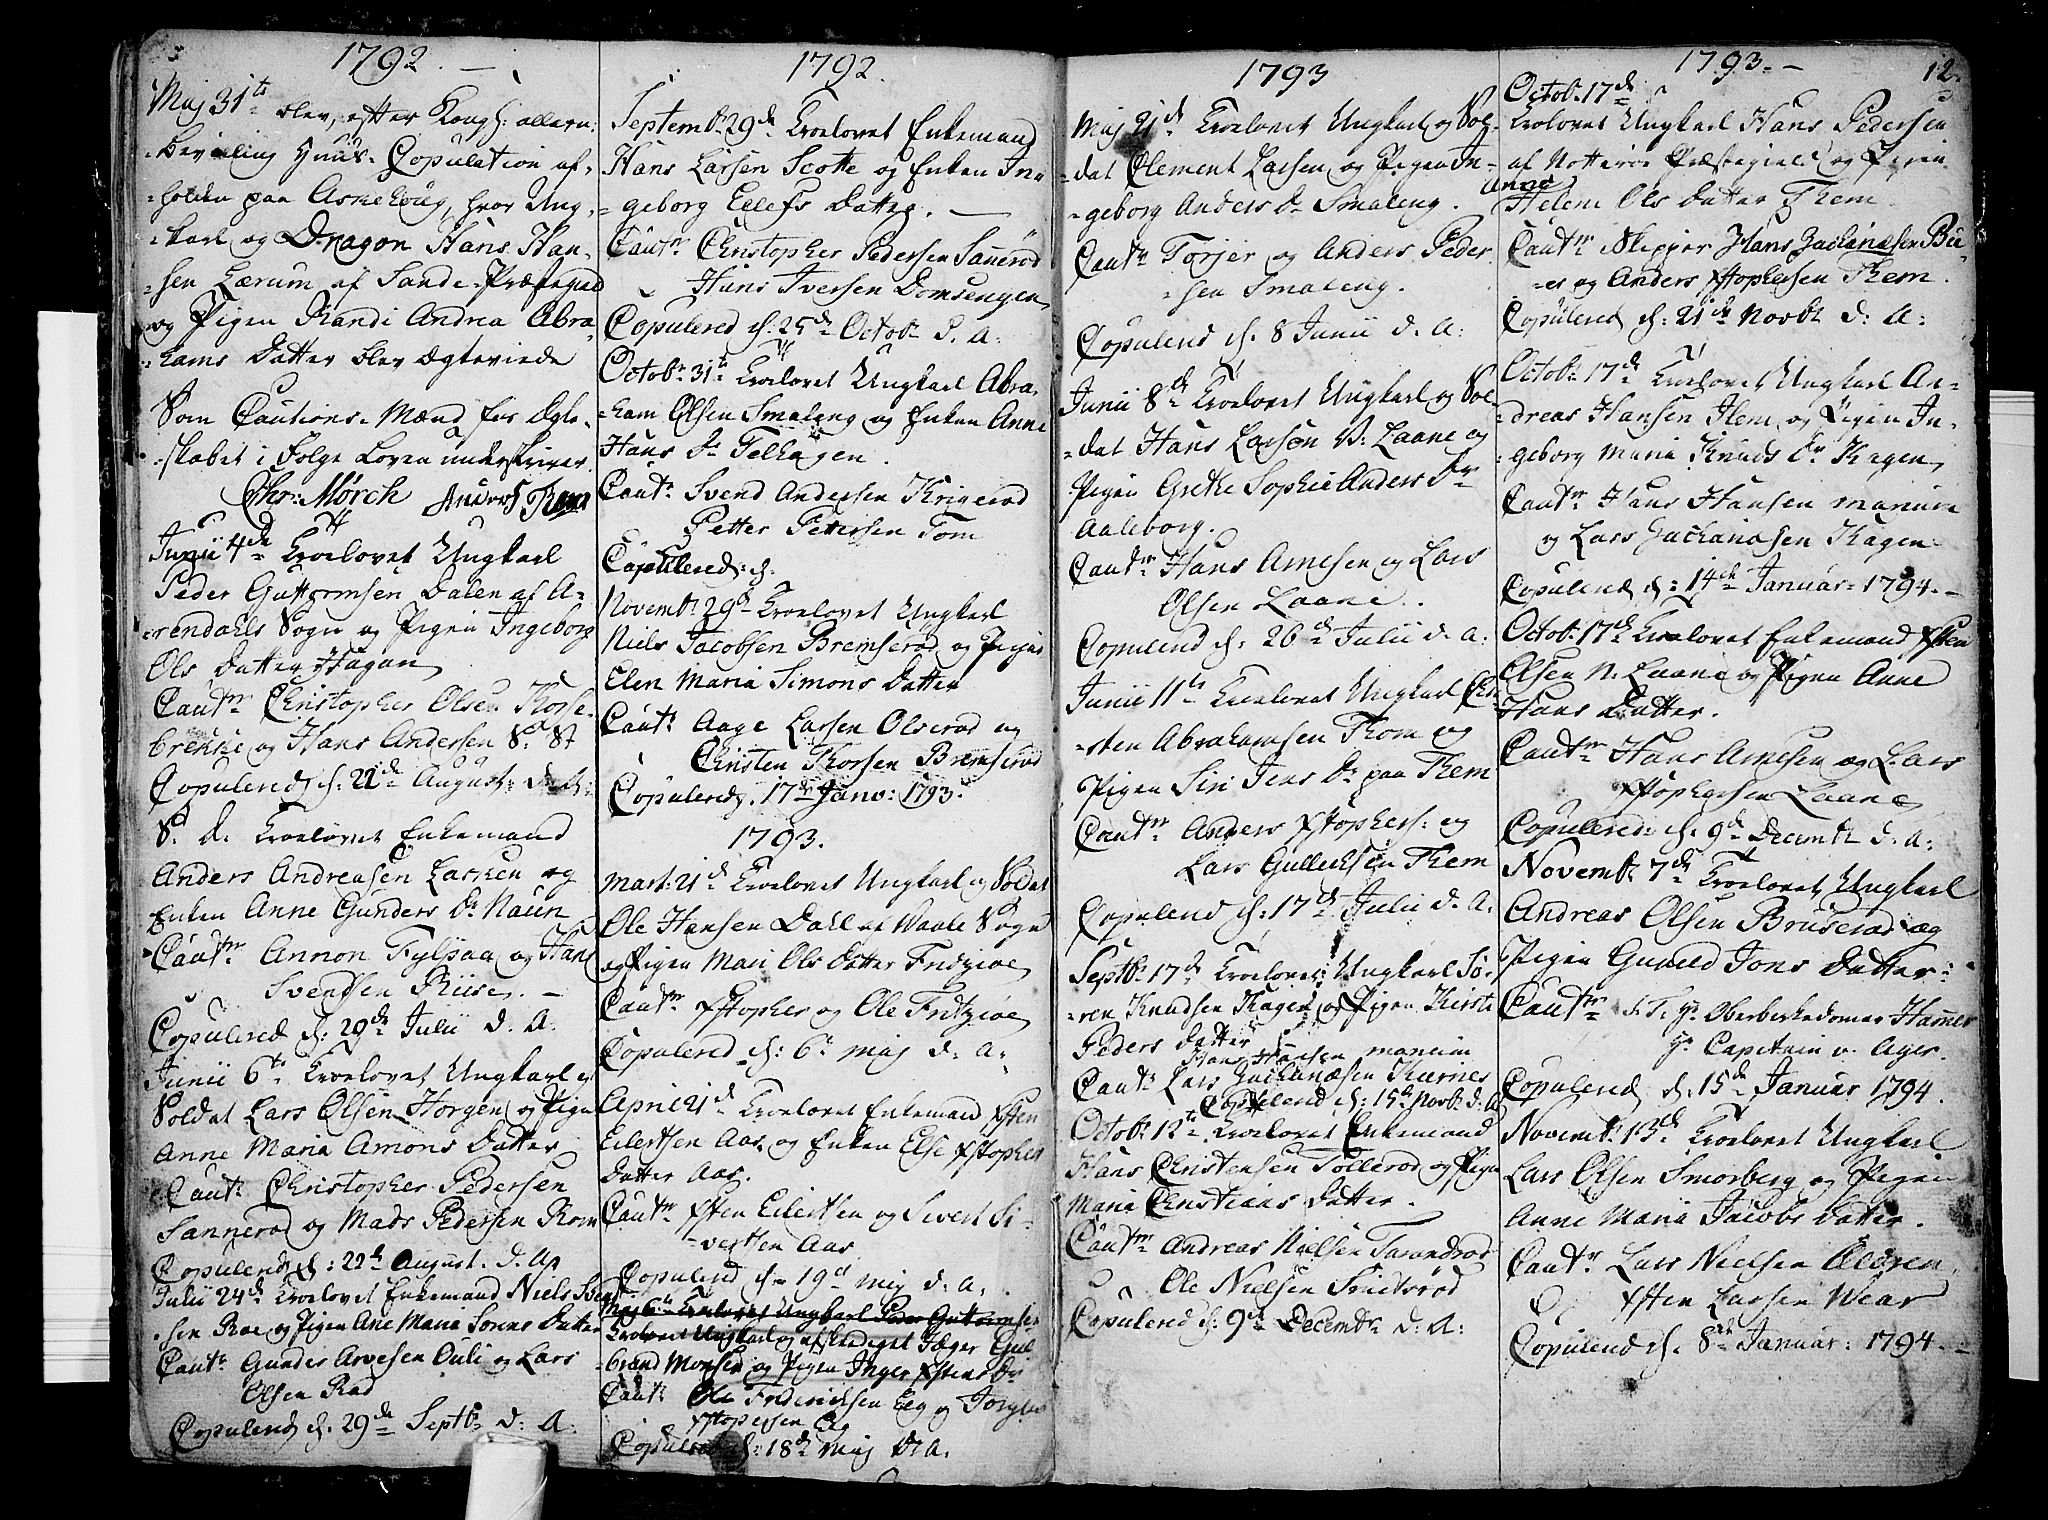 1792. —
Maj 31te blev, efter Kongl: allern:
bevieling Huus-Copulation af-
holden paa Askehoug, hvor Ung-
karl og Dragon Hans Han-
sen Lærum af Sande Præstegield
og Pigen Randi Andrea Abra-
hams Datter blev ægteviede
Som Cautions-Mænd for Ægte-
skabet i Følge Loven underskriver
Chr: Mørch Anders Rem
Junii 4de Trolovet Ungkarl
Peder Guttormsen Dalen af A-
rendahls Sogn og Pigen Ingeborg
Ols Datter Hagan
Cautr Christopher Olsen Thorse-
brekke og Hans Andersen
Copulered d: 22de August: d: A:
S. D. Trolovet Enkemand
Anders Andreasen Lasken og
Enken Anne Gunders Dr Naun
Cautr Annon Fylpaa og Hans
Svendsen Riise. —
Copulered d: 29de Julii d. A.
Junii 6te Trolovet Ungkarl og
Soldat Lars Olsen Horgen og Pigen
Anne Maria Amons Datter
Cautr Christopher Pedersen
Sannerød og Mads Pedersen Rom
Copulered d: 22de August. d. A
Julii 24de Trolovet Enkemand Niels
sen Roe og Pigen Ane Maria Sørens Datter
Cautr Gunder Arvesen Ouli og Lars
Olsen Rød
Copulered d. 29de Septbr d: A:
1792.
Septembr 29de Trolovet Enkemand
Hans Larsen Scotte og Enken In-
geborg Ellefs Datter. —
Cautr Christopher Pedersen Sanerød
Hans Iversen Domsengen
Copulered d: 25de Octobr d. A.
Octobr 31te Trolovet Ungkarl Abra-
ham Olsen Smaleng og Enken Anne
Hans Dr Felhagen.
Cautr Svend Andersen Krigerød
Petter Pettersen Tom
Copulered: d:
Novembr 29de Trolovet Ungkarl
Niels Jacobsen Bremserød og Pigen
Elen Maria Simons Datter
Cautr Aage Larsen Olserød og
Christen Thorsen Bremserød
Copulered. 17de Janv: 1793.
1793.
Mart: 21de Trolovet Ungkarl og Soldat
Ole Hansen Dahl af Vaale Sogn
og Pigen Mari Ols Datter Fritzøe
Cautr Xstopher og Ole Fritzøe
Copulered d: 6te Maj d: A:
April 21de Trolovet Enkemand Xsten
Eilertsen Aas og Enken Else Xstophers
Datter Aas.
Cautr Xsten Eilertsen og Sivert Si-
vertsen Aas
Copulered d: 19de Maj d: A.
Maj 6te Trolovet Ungkarl Peder Guttormsen
Trolovet Ungkarl og afskediget Jæger Gul-
brand Monsen og Pigen Inger Xstens Dr
Cautr Ole Frederichsen Eeg og
Xstophersen Eeg
Copulered d: 18de Maj d: A.
1793
Maj 21de Trolovet Ungkarl og Sol-
dat Clement Larsen og Pigen In-
geborg Anders Dr Smaleng.
Cautr Torjer og Anders Peder
sen Smaleng.
Copulered d. 8 Junii d. A:
Junii 8de Trolovet Ungkarl og Sol-
dat Hans Larsen V: Laane og
Pigen Grethe Sophie Anders Dr
Aaleborg.
Cautr Hans Arnesen og Lars
Olsen Laane.
Copulered d: 26de Julii d: A:
Junii 11te Trolovet Ungkarl Chr-
sten Abrahamsen Thom og
Pigen Siri Jens Dr paa Rem
Cautr Anders Xstophers: og
Lars Gullichsen Rem
Copulered d: 17de Julii d: A.
Septbr 17de Trolovet Ungkarl Sø-
ren Knudsen Hagen og Pigen Kirsti
Peders Datter
Hans Hansen Manum
Cautr Lars Zachariæsen Kiernes
Copulered d: 15de Novbr d: A
Octobr 12te Trolovet Enkemand
Hans Christensen Tollerød og Pigen
Maria Christians Datter.
Cautr Andreas Nielsen
Ole Nielsen
Copulered d: 9de Decembr d: A:
1793. — 12.
Octob: 17de
Trolovet Ungkarl Hans Pedersen
af Nøtterøe Præstegield og Pigen
Anne
Helene Ols Datter Rem
Cautr Skipper Hans Zachariæsen Bu-
er og Anders Xstophersen Rem.
Copulered d: 21de Novbr d: A:
Octob: 17de Trolovet Ungkarl An-
dreas Hansen Hem og Pigen In-
geborg Maria Knuds Dr Hagen
Cautr Hans Hansen Manum
og Lars Zachariasen Hagen
Copulered d: 14de Januar: 1794. —
Octob: 17de Trolovet Enkemand Xsten
Olsen N. Laane og Pigen Anne
Hans Datter.
Cautr Hans Arnesen og Lars
Xstophersen Laane
Copulered: d. 9de Decembr d: A:
Novembr 7de Trolovet Ungkarl
Andreas Olsen Bruserød og
Pigen Gunild Jons Datter:
Cautr S. T. Hr Oberberhedomer Hammer
Hr Capitain v. Ager.
Copulered d: 15de Januar 1794.
Novembr 13de Trolovet Ungkarl
Lars Olsen Smørberg og Pigen
Anne Maria Jacobs Datter.
Cautr Lars Nielsen
Xsten Larsen Wear
Copulered d. 8de Januar: 1794. —